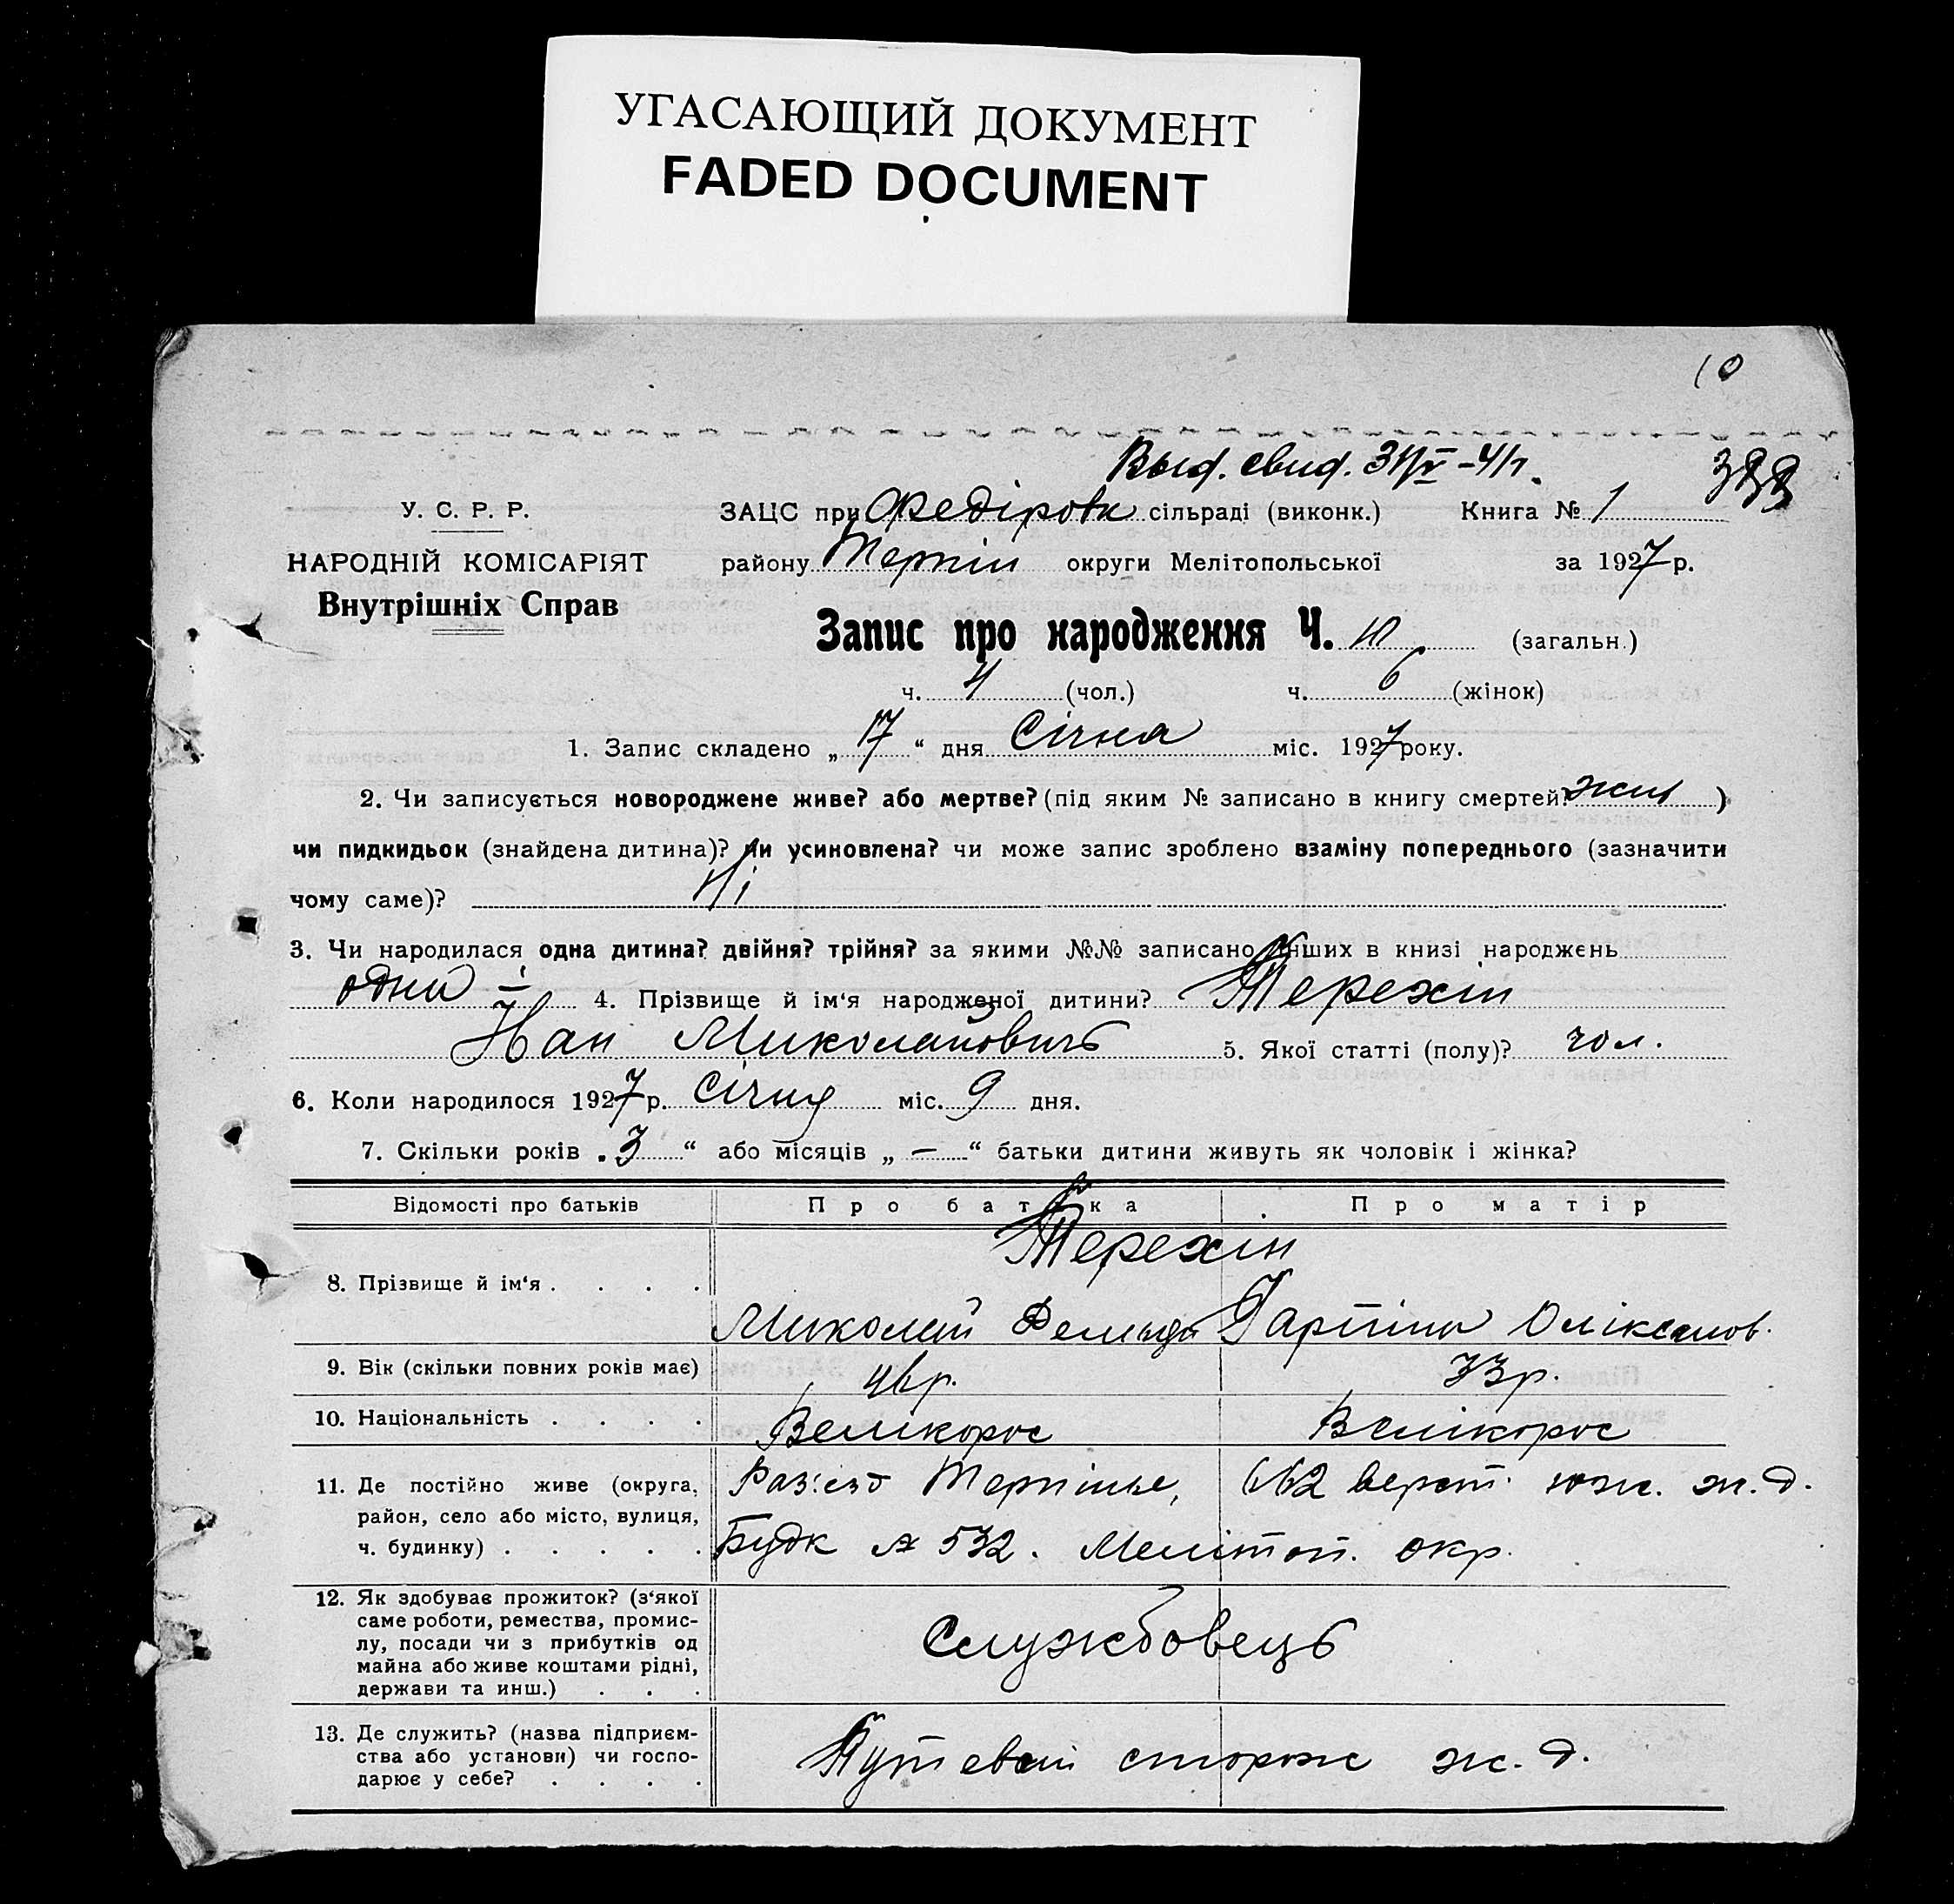 УГАСАЮЩИЙ ДОКУМЕНТ
FADED DOCUMENT
10
Выд. свид. 31/V-41г.
У. С. Р. Р.
НАРОДНІЙ КОМІСАРІЯТ
Внутрішніх Справ
ЗАЦС при Федіровк сільраді (виконк.) Книга № 1
району Терпін округи Мелітопольської за 1927 р.
Запис про народження Ч. 10 (загальн.)
ч. 4 (чол.) ч. 6 (жінок)
1. Запис складено „ 17 “ дня Січня міс. 1927 року.
2. Чи записується новороджене живе? або мертве? (під яким № записано в книгу смертей? жив )
чи пидкидьок (знайдена дитина)? чи усиновлена? чи може запис зроблено взаміну попереднього (зазначити
чому саме)? Ні
3. Чи народилася одна дитина? двійня? трійня? за якими №№ записано інших в книзі народжень
одна 4. Прізвище й ім‘я народженої дитини? Терехін
Іван Миколайовичь 5. Якої статті (полу)? чол.
6. Коли народилося 1927 р. Січня міс. 9 дня.
7. Скільки років „ 3 “ або місяців „ — “ батьки дитини живуть як чоловік і жінка?
Відомості про батьків Про батька Про матір
8. Прізвище й ім‘я . . . . Терехін
Миколай Оліксанов.
9. Вік (скільки повних років має) 46р. 33р.
10. Національність . . . . Велікорос Велікорос
11. Де постійно живе (округа, Раз'езд Терпінье, 662 верст. юж. ж. д.
район, село або місто, вулиця,
ч. будинку) . . . . . Будк № 532. Меліտоп. окр.
12. Як здобуває прожиток? (з‘якої
саме роботи, ремества, промис-
лу, посади чи з прибутків од
майна або живе коштами рідні,
держави та инш.) . . . Службовець
13. Де служить? (назва підприєм-
ства або установи) чи госпо-
дарює у себе? . . . . Путевой сторож ж. д.